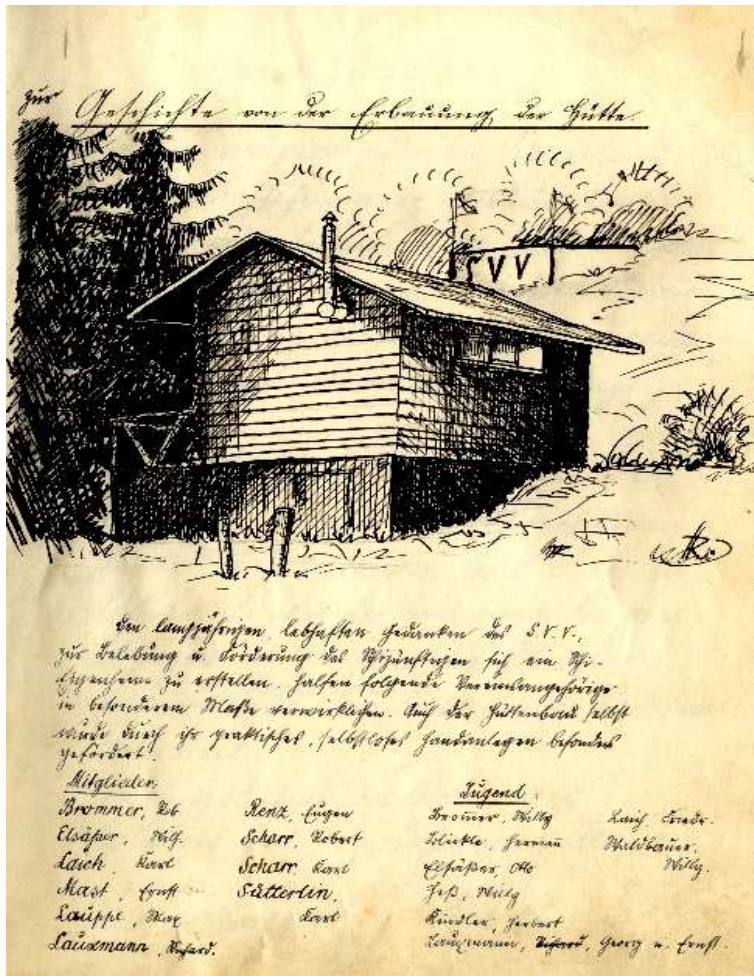 Zur Geschichte von der Erbauung der Hütte.
S V V
Den langjährigen, lebhaften Gedanken des S.V.V.,
zur Belebung u. Förderung des Schizünftigen sich ein Schi-
Eigenheim zu erstellen. halfen folgende Vereinsangehörige
in besonderem Maße verwirklichen. Auch der Hüttenbau selbst
wurde durch ihr praktisches, selbstloses Handanlegen besonders
gefördert.
Mitglieder:
Brommer, Rob
Elsäßer, Wilh.
Laich, Karl
Mast, Ernst
Lauppe, Max
Lauxmann, Richard.
Renz, Eugen
Scharr, Robert
Scharr, Karl
Sütterlin,
Karl
Jugend:
Bromer, Willy
Blickle, Hermann
Elsäßer, Otto
Heß, Willy
Kindler, Herbert
Lauxmann, Richard, Georg u. Ernst.
Laich, Friedr.
Waldbauer,
Willy.